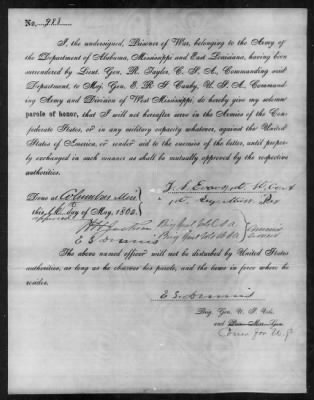 No. 988
I, the undersigned, Prisoner of War, belonging to the Army of
the Department of Alabama, Mississippi and East Louisiana, having been
surrendered by Lieut. Gen. R. Taylor, C. S. A., Commanding said
Department, to Maj. Gen. E. R. S. Canby, U. S. A., Command-
ing Army and Division of West Mississippi, do hereby give my solemn
parole of honor, that I will not hereafter serve in the Armies of the Con-
federate States, or in any military capacity whatever, against the United
States of America, or render aid to the enemies of the latter, until pro-
perly exchanged in such manner as shall be mutually approved by the respective
authorities.
Done at Columbus Miss
this 16 day of May, 1865.
approved
E S Dennis
The above named officer will not be disturbed by United States
authorities, as long as he observes his parole, and the laws in force where he
resides.
E S Dennis
Brig. Gen. U. S. Vols.
and
Com for U.S